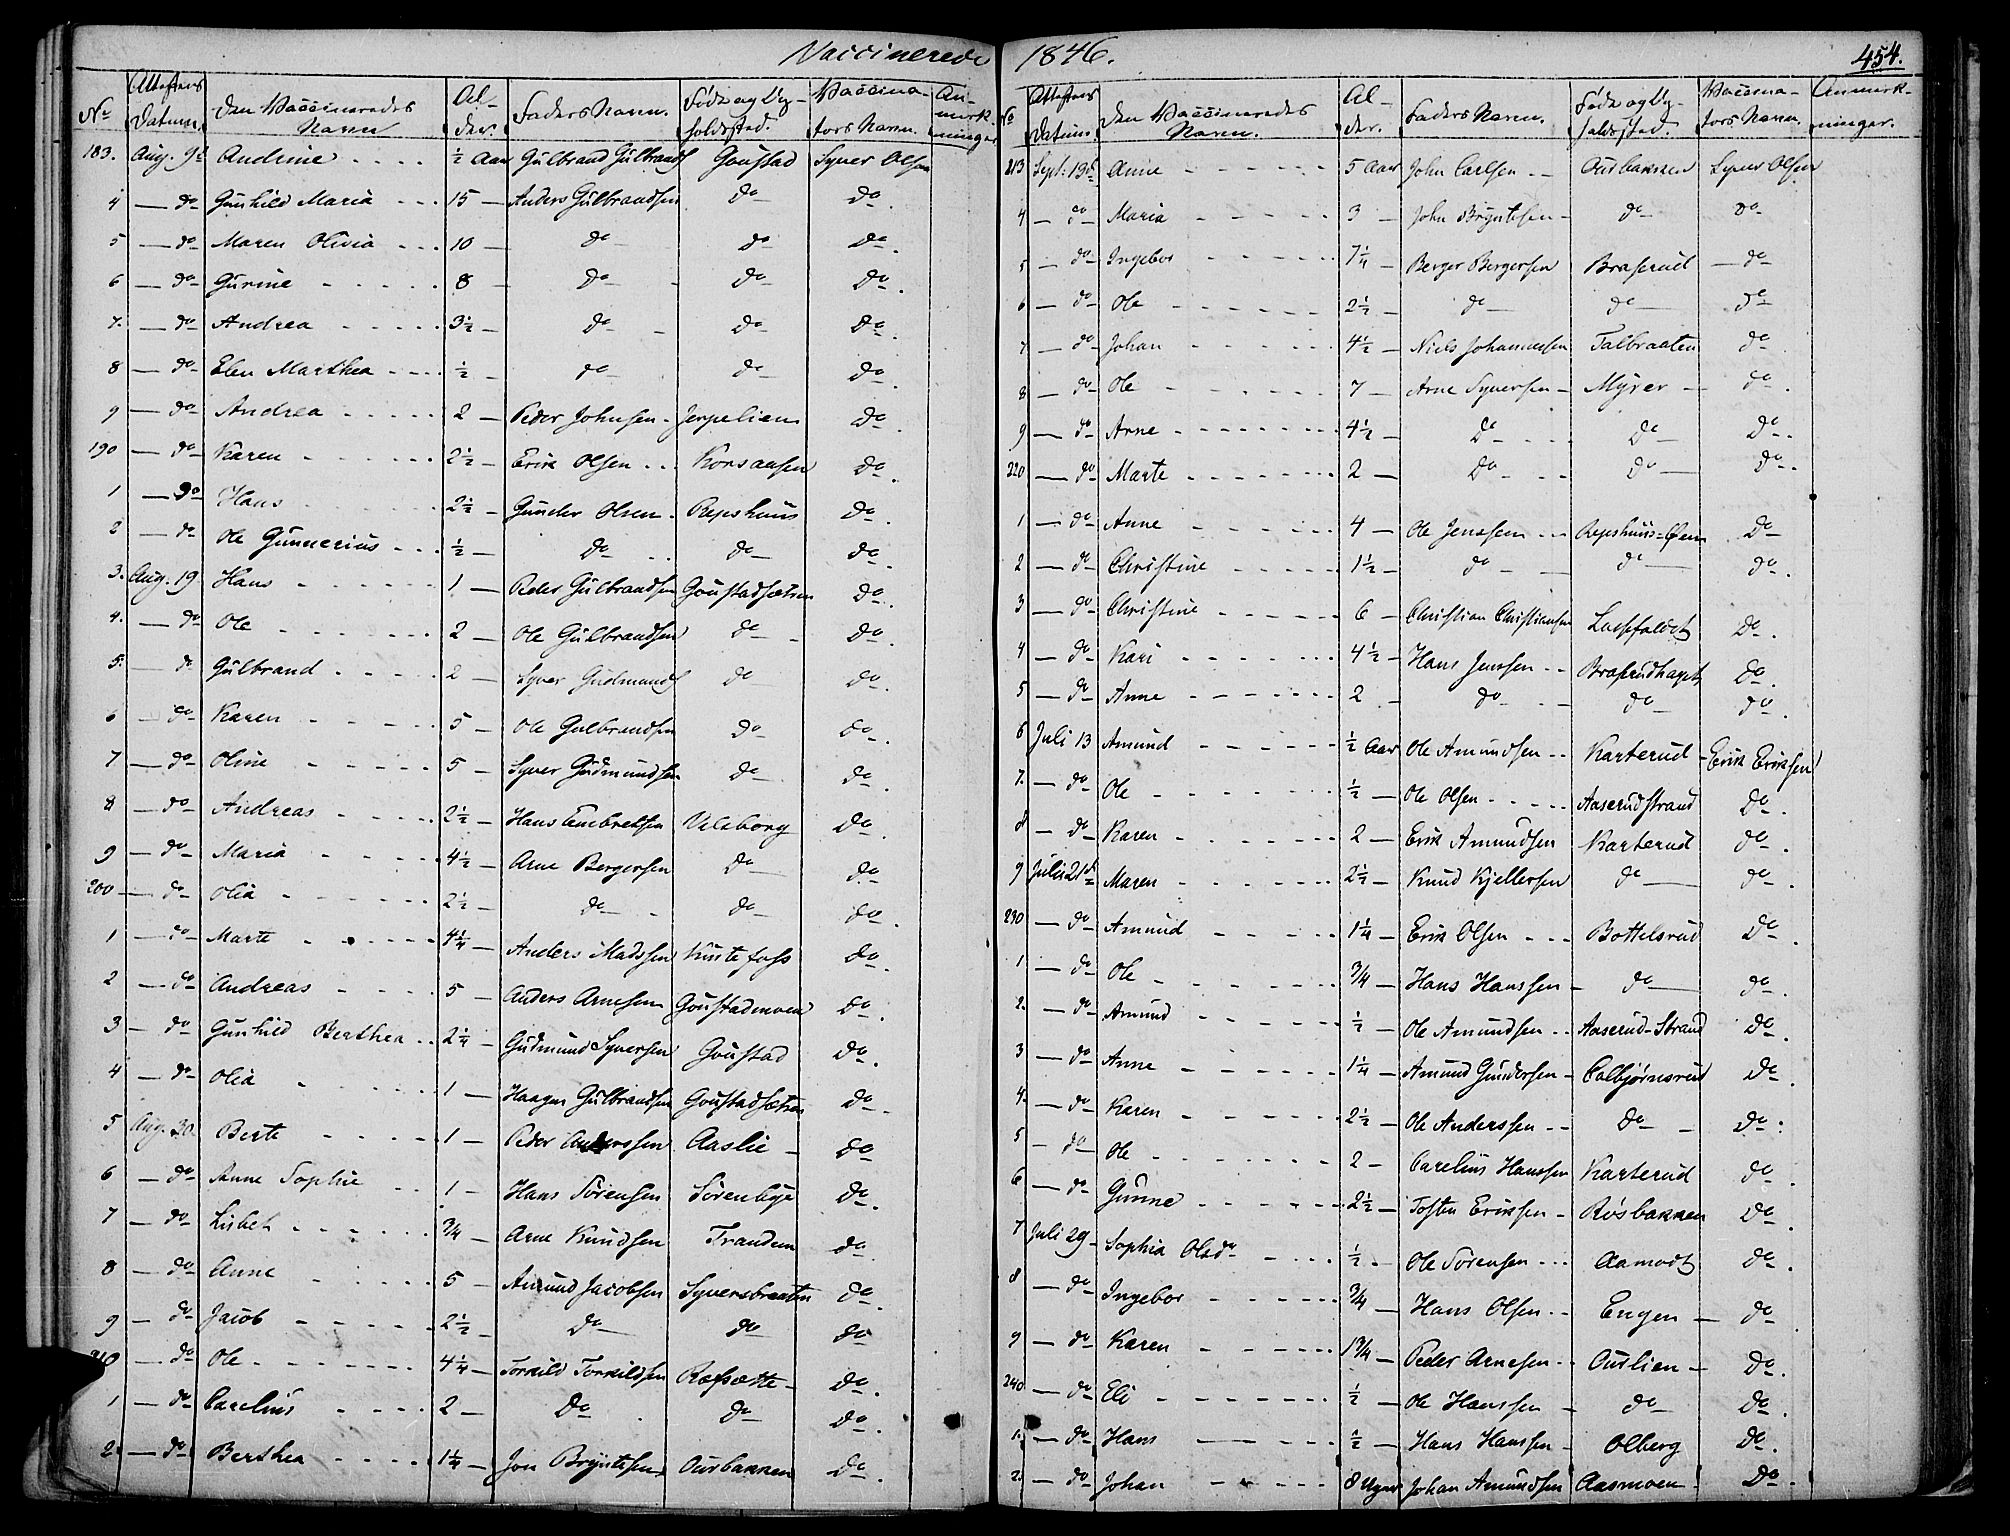 Vaccinerede
No
Attestens Datum.
Den Vaccineredes Navn
Al-der.
Faders Navn.
Føde og Op-holdssted.
Vaccina-tors Navn.
An-mærk-ninger
183. Aug. 9d Andrine ½ Aar Gulbrand Gulbrands Goustad Syver Olsen
4 — do Gunhild Maria 15 — Anders Gulbrandsen do do
5 — do Maren Olivia 10 — do do do
6 — do Gurine 8 - do do do
7. — do Andrea 3½ — do do do
8 — do Elen Marthea ½ — do do do
9 — do Andrea 2 — Peder Johnsen Jerpelien do
190 — do Karen 2½ — Erik Olsen Korsaasen do
1 — do Hans 2½ — Gunder Olsen Repshuus do
2 — do Ole Gunnerius ½ — do do do
3. Aug. 19 Hans 1 — Peder Gulbrandsen Goustadsætren do
4. — do Ole 2 — Ole Gulbrandsen do do
5. — do Gulbrand 2 — Syver Gudmunds do do
6 — do Karen 5 — Ole Gulbrandsen do do
7 — do Oline 5 — Syver Gudmundsen do do
8 — do Andreas 2½ — Hans Embretsen Valsborg do
9 — do Maria 4½ — Arne Bergersen do do
200 — do Olia 2½ — do do do
1 — do Marte 4¼ — Anders Madssen Knutefoss do
2 — do Andreas 5 — Anders Arnesen Goustadmoen do
3 — do Gunhild Berthea 2¼ — Gudmund Syversen Goustad do
4 — do Olia 1 — Haagen Gulbrandsen Goustadsætren do
5 Aug. 30. Berte 1 — Peder Anderssen Aaslie do
6 — do Anne Sophie 1 — Hans Sørensen Sørenbye do
7 — do Lisbet ¾ — Arne Knudsen Trandem do
8 — do Anne 5 — Amund Jacobsen Syversbraaten do
9 — do Jacob 2½ — do do do
210 — do Ole 4¼ — Torkild Torkildsen Røfsætte do
1 — do Carelius 2 — do do do
2 — do Berthea 1¼ — Jon Bryntesen Ourbakken do
1846.
454.
No
Attestens Datum.
Den Vaccineredes Navn.
Al-der.
Faders Navn.
Føde og Op-holdssted.
Vaccina-tors Navn.
Anmærk-ninger.
213 Sept. 19d Anne 5 Aar John Carlsen Ourbakken Syver Olsen
4 — do Maria 3 — John Bryntesen do do
5 — do Ingebor 7¼ — Berger Bergersen Braserud do
6 — do Ole 2½ — do do do
7 — do Johan 4½ — Niels Johannessen Talbraaten do
8 — do Ole 7 — Arne Syversen Myrer do
9 — do Arne 4½ — do do do
220 — do Marte 2 — do do do
1 — do Anne 4 — Ole Jenssen do
2 — do Christine 1½ — do do do
3 — do Christine 6 — Christian Christiansen do
4 — do Kari 4½ — Hans Jenssen Braserudhaget do
5 — do Anne 2 - do do do
6 Juli 13 Amund ½ Aar Ole Amundsen Karterud Erik Eriksen
7. — do Ole ½ — Ole Olsen Aaserudstrand do
8 — do Karen 2 — Erik Amundsen Karterud do
9 Juli 21d Maren 2½ — Knud Kjellersen do do
230 — do Amund 1¼ — Erik Olsen Bottelsrud do
1 — do Ole ¾ — Hans Hanssen do do
2. — do Amund ½ — Ole Amundsen Aaserud-Strand do
3 — do Anne 1¼ — Amund Gundersen Colbjørnsrud do
4. — do Karen 2½ — Ole Anderssen do do
5 — do Ole 2 — Carelius Hanssen Karterud do
6 — do Gunne 2½ — Tosten Erikssen Røsbakken do
7 Juli 29 Sophia Olsdr ½ - Ole Sørensen Aamodt do
8 — do Ingebor ¾ — Hans Olsen Engen do
9 — do Karen 1¾ — Peder Arnesen Ourlien do
240 — do Eli ½ — Ole Hanssen do do
1. — do Hans ½ — Hans Hanssen Olberg do
2. — do Johan 8 Uger Johan Amundsen Aasmoen do